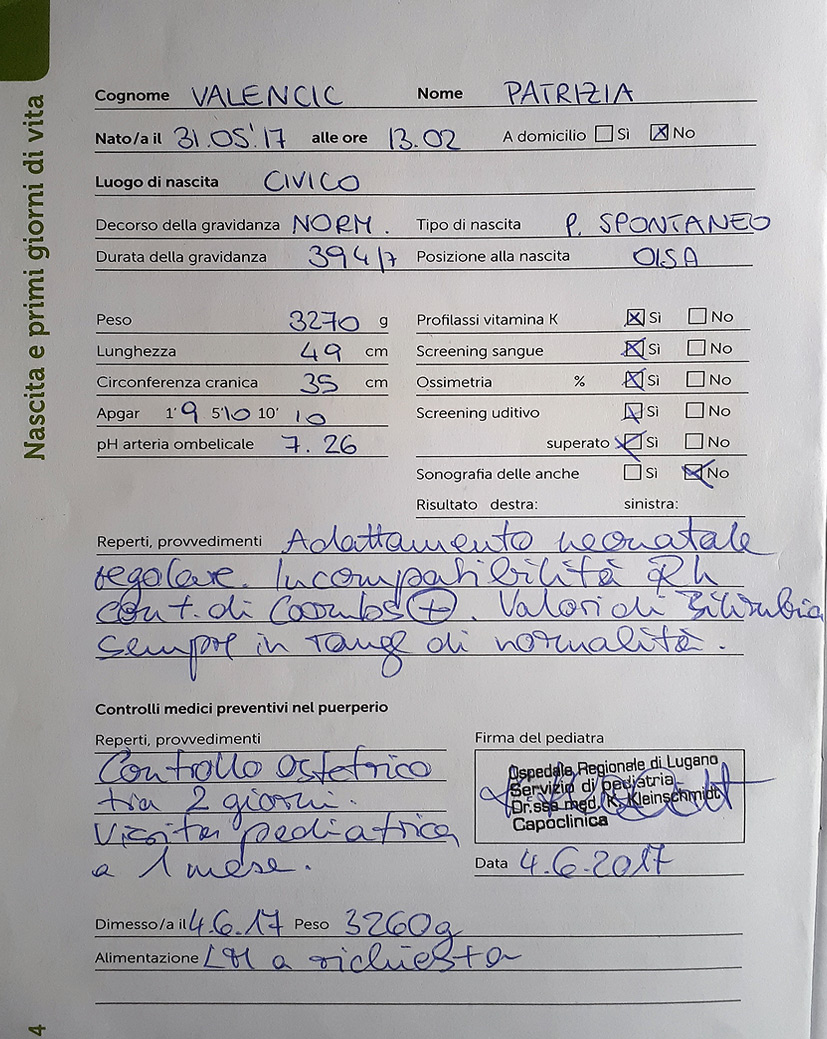 Nascita e primi giorni di vita
Cognome VALENCIC Nome PATRIZIA
Nato/a il 31.05'.17 alle ore 13.02 A domicilio Sì No
Luogo di nascita CIVICO
Decorso della gravidanza NORM. Tipo di nascita P. SPONTANEO
Durata della gravidanza 39 4/7 Posizione alla nascita OISA
Peso 3270 g Profilassi vitamina K Sì No
Lunghezza 49 cm Screening sangue Sì No
Circonferenza cranica 35 cm Ossimetria % Sì No
Apgar 1' 9 5' 10 10' 10 Screening uditivo Sì No
pH arteria ombelicale 7.26 superato Sì No
Sonografia delle anche Sì No
Risultato destra: sinistra:
Reperti, provvedimenti Adattamento neonatale
regolare. Incompatibilità Rh
con t. di Coombs (+). Valori di Bilirubina
sempre in range di normalità.
Controlli medici preventivi nel puerperio
Reperti, provvedimenti
Controllo Ostetrico
tra 2 giorni.
Visita pediatrica
a 1 mese.
Firma del pediatra
Ospedale Regionale di Lugano
Servizio di pediatria
Dr.ssa med. K. Kleinschmidt
Capoclinica
Data 4.6.2017
Dimesso/a il 4.6.17 Peso 3260g
Alimentazione LM a richiesta
4